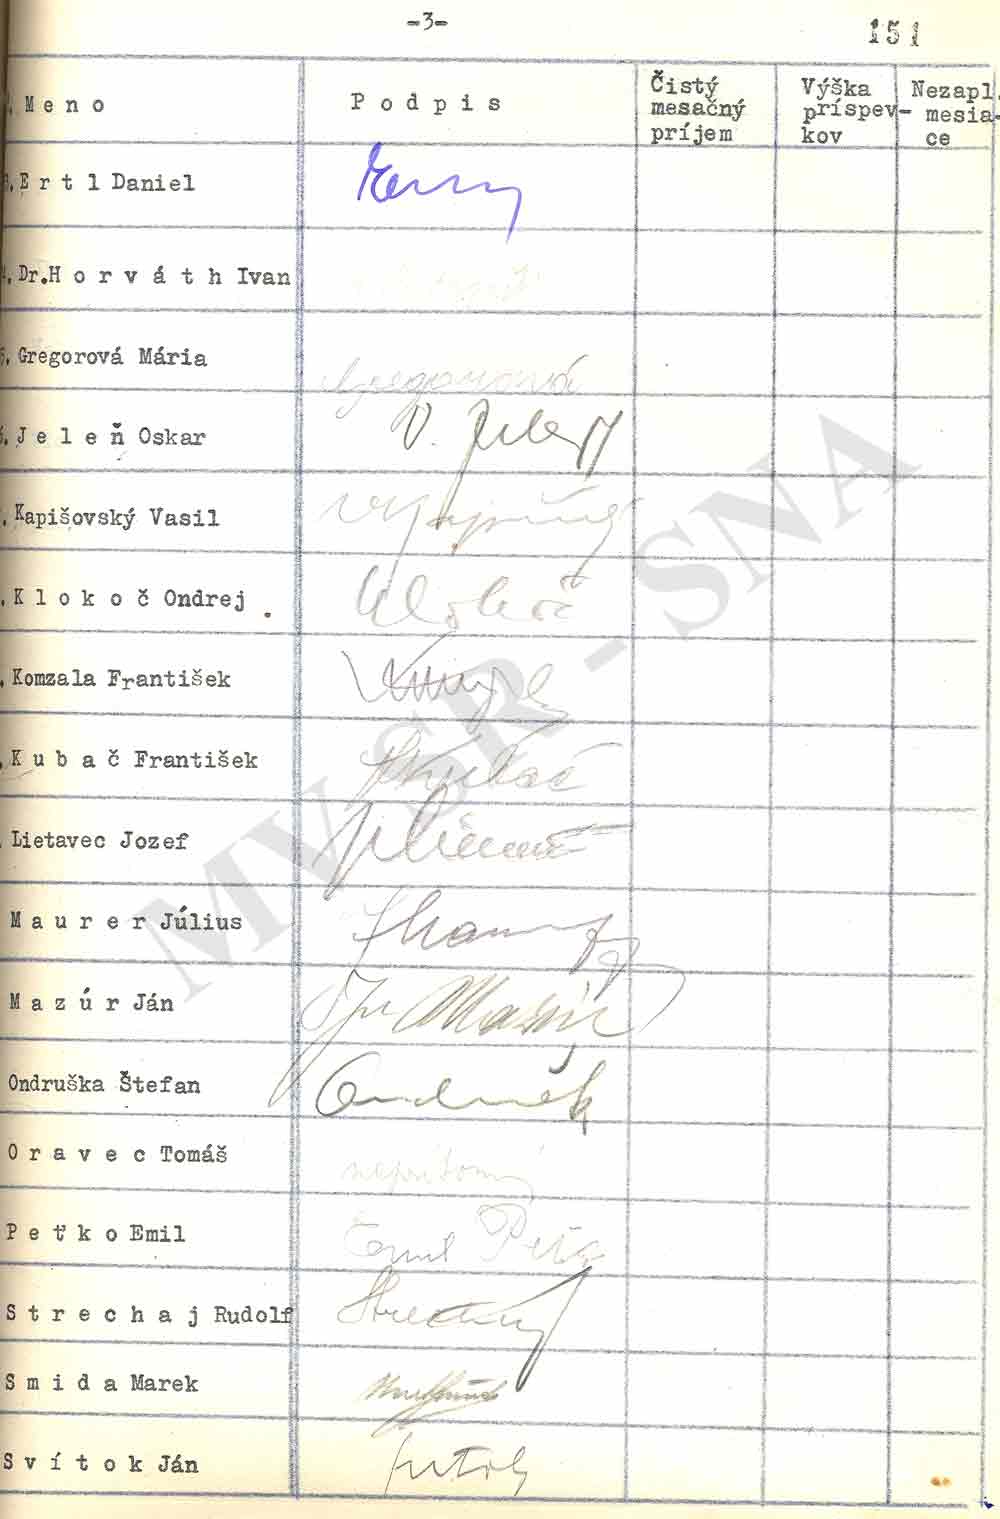 -3-
151
Meno Podpis Čistý mesačný príjem Výška príspev- kov Nezapl. mesia- ce
Ertl Daniel
Dr. Horváth Ivan
Gregorová Mária Gregorová
Jeleň Oskar
Kapišovský Vasil
Klokoč Ondrej Klokoč
Komzala František
Kubač František Kubač
Lietavec Jozef
Maurer Július
Mazúr Ján
Ondruška Štefan
Oravec Tomáš neprítomný
Peťko Emil Emil
Strechaj Rudolf
Smida Marek
Svítok Ján
MV SR - SNA